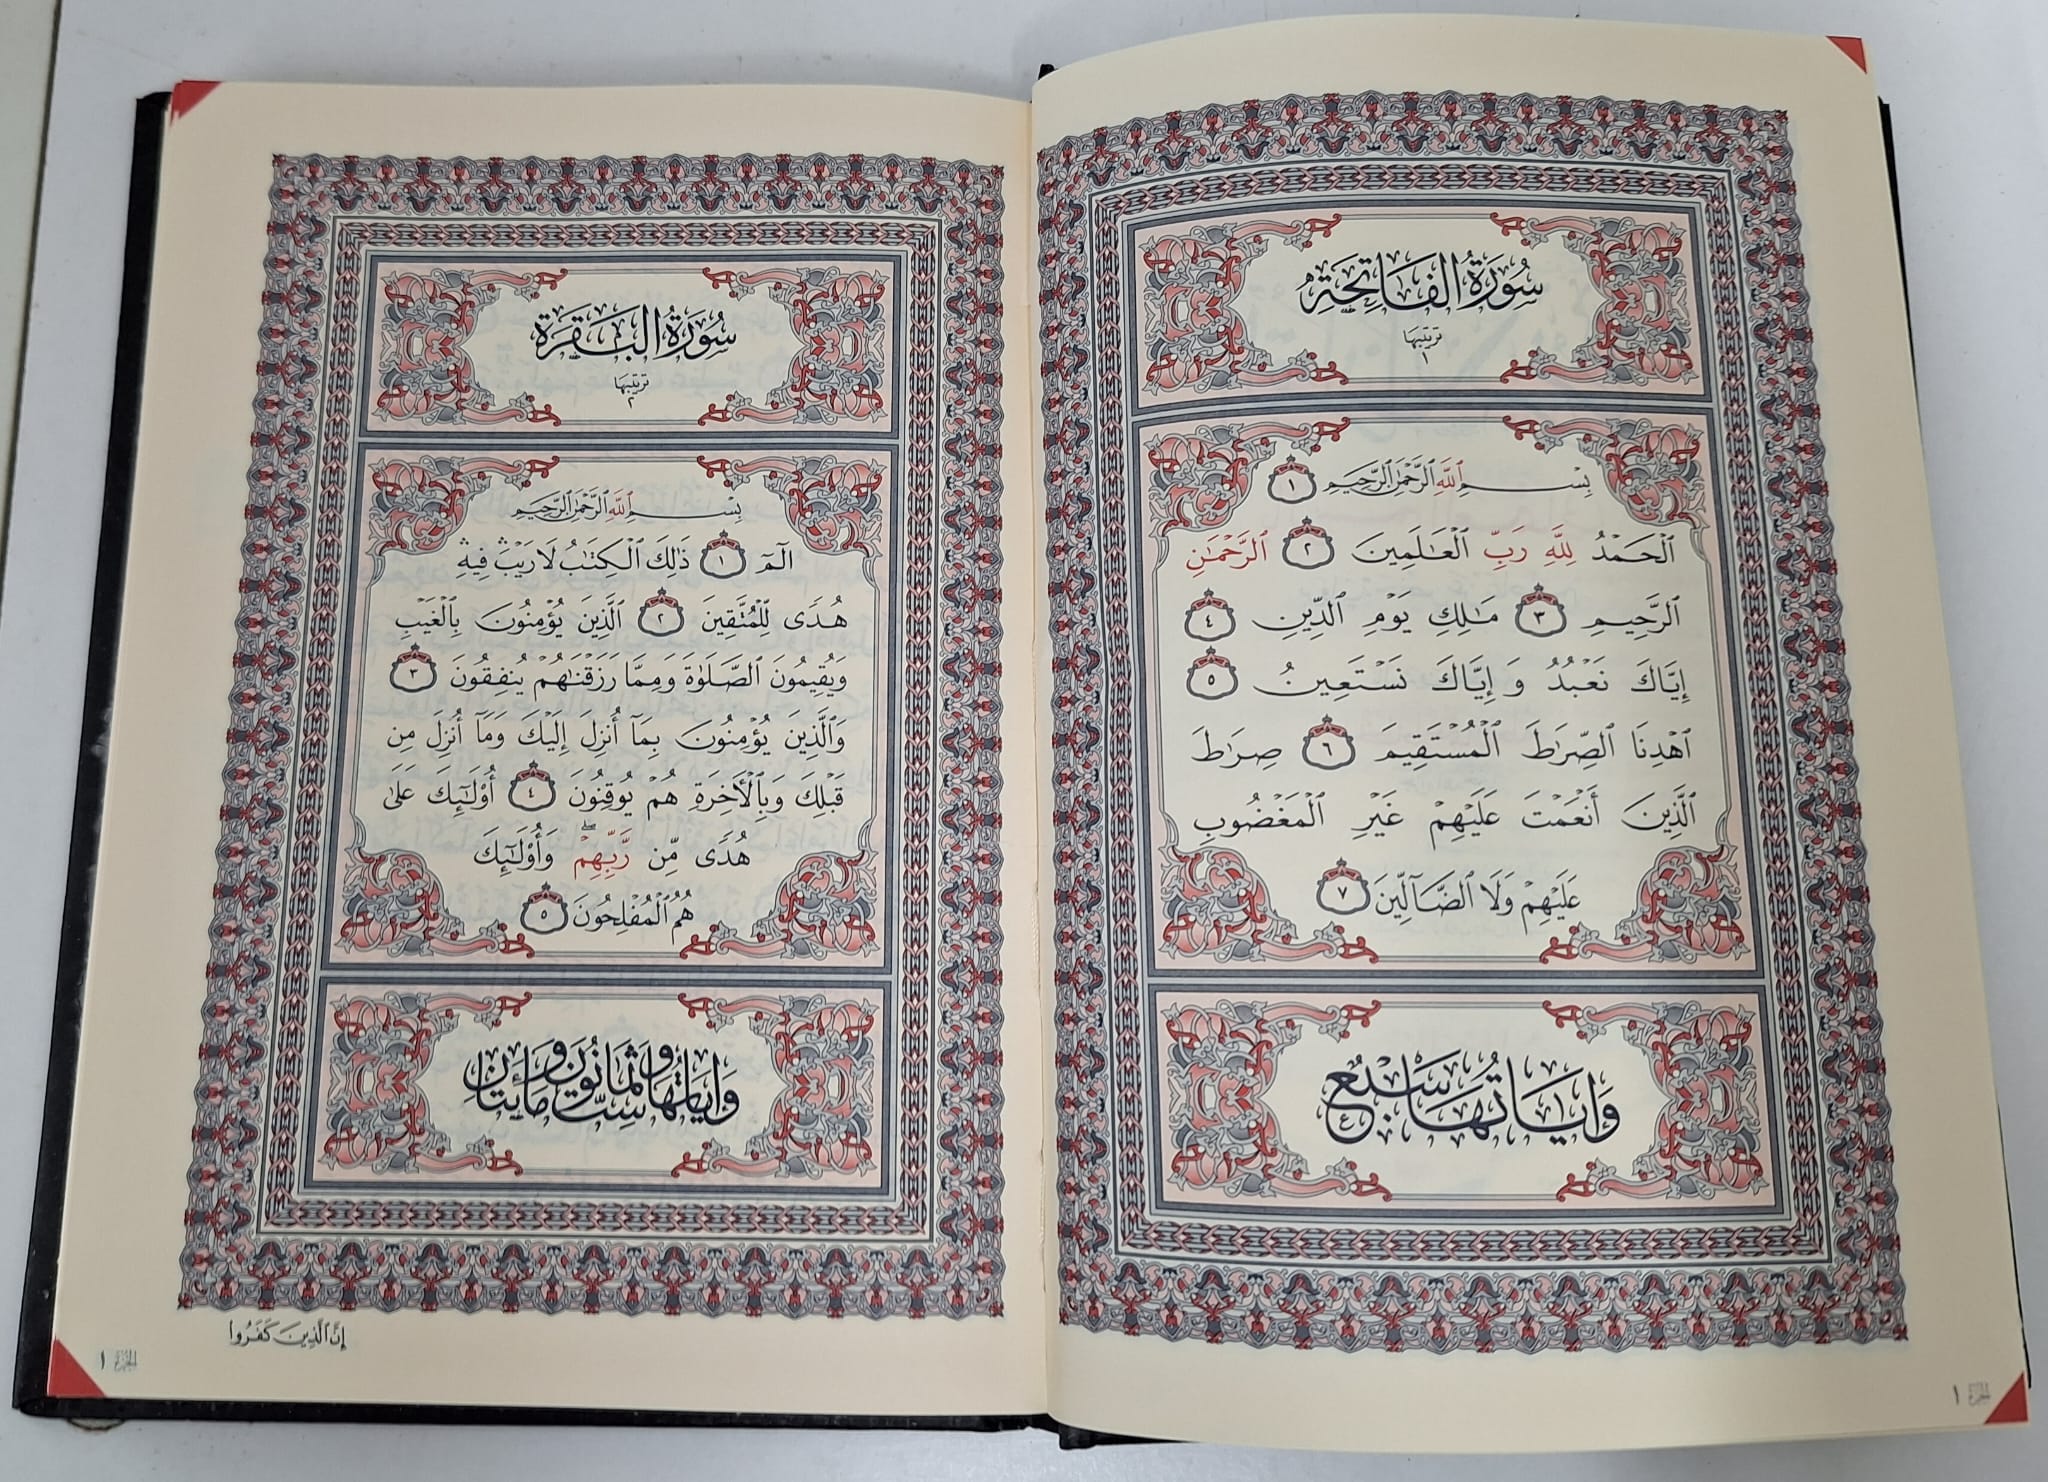 سُورَةُ الفَاتِحَةِ
تَرْتِيبُهَا
١
بِسْمِ ٱللَّهِ ٱلرَّحْمَٰنِ ٱلرَّحِيمِ ١
ٱلْحَمْدُ لِلَّهِ رَبِّ ٱلْعَٰلَمِينَ ٢ ٱلرَّحْمَٰنِ
ٱلرَّحِيمِ ٣ مَٰلِكِ يَوْمِ ٱلدِّينِ ٤
إِيَّاكَ نَعْبُدُ وَإِيَّاكَ نَسْتَعِينُ ٥
ٱهْدِنَا ٱلصِّرَٰطَ ٱلْمُسْتَقِيمَ ٦ صِرَٰطَ
ٱلَّذِينَ أَنْعَمْتَ عَلَيْهِمْ غَيْرِ ٱلْمَغْضُوبِ
عَلَيْهِمْ وَلَا ٱلضَّآلِّينَ ٧
وَايَاتُهَا سَبْعٌ
الجزء ١
سُورَةُ البَقَرَةِ
تَرْتِيبُهَا
٢
بِسْمِ ٱللَّهِ ٱلرَّحْمَٰنِ ٱلرَّحِيمِ
الٓمٓ ١ ذَٰلِكَ ٱلْكِتَٰبُ لَا رَيْبَۛ فِيهِۛ
هُدًى لِّلْمُتَّقِينَ ٢ ٱلَّذِينَ يُؤْمِنُونَ بِٱلْغَيْبِ
وَيُقِيمُونَ ٱلصَّلَوٰةَ وَمِمَّا رَزَقْنَٰهُمْ يُنفِقُونَ ٣
وَٱلَّذِينَ يُؤْمِنُونَ بِمَآ أُنزِلَ إِلَيْكَ وَمَآ أُنزِلَ مِن
قَبْلِكَ وَبِٱلْأَخِرَةِ هُمْ يُوقِنُونَ ٤ أُو۟لَٰٓئِكَ عَلَىٰ
هُدًى مِّن رَّبِّهِمْۖ وَأُو۟لَٰٓئِكَ
هُمُ ٱلْمُفْلِحُونَ ٥
وَايَاتُهَا سِتٌّ وَثَمَانُونَ وَمَائَتَانِ
إِنَّ ٱلَّذِينَ كَفَرُوا
الجزء ١